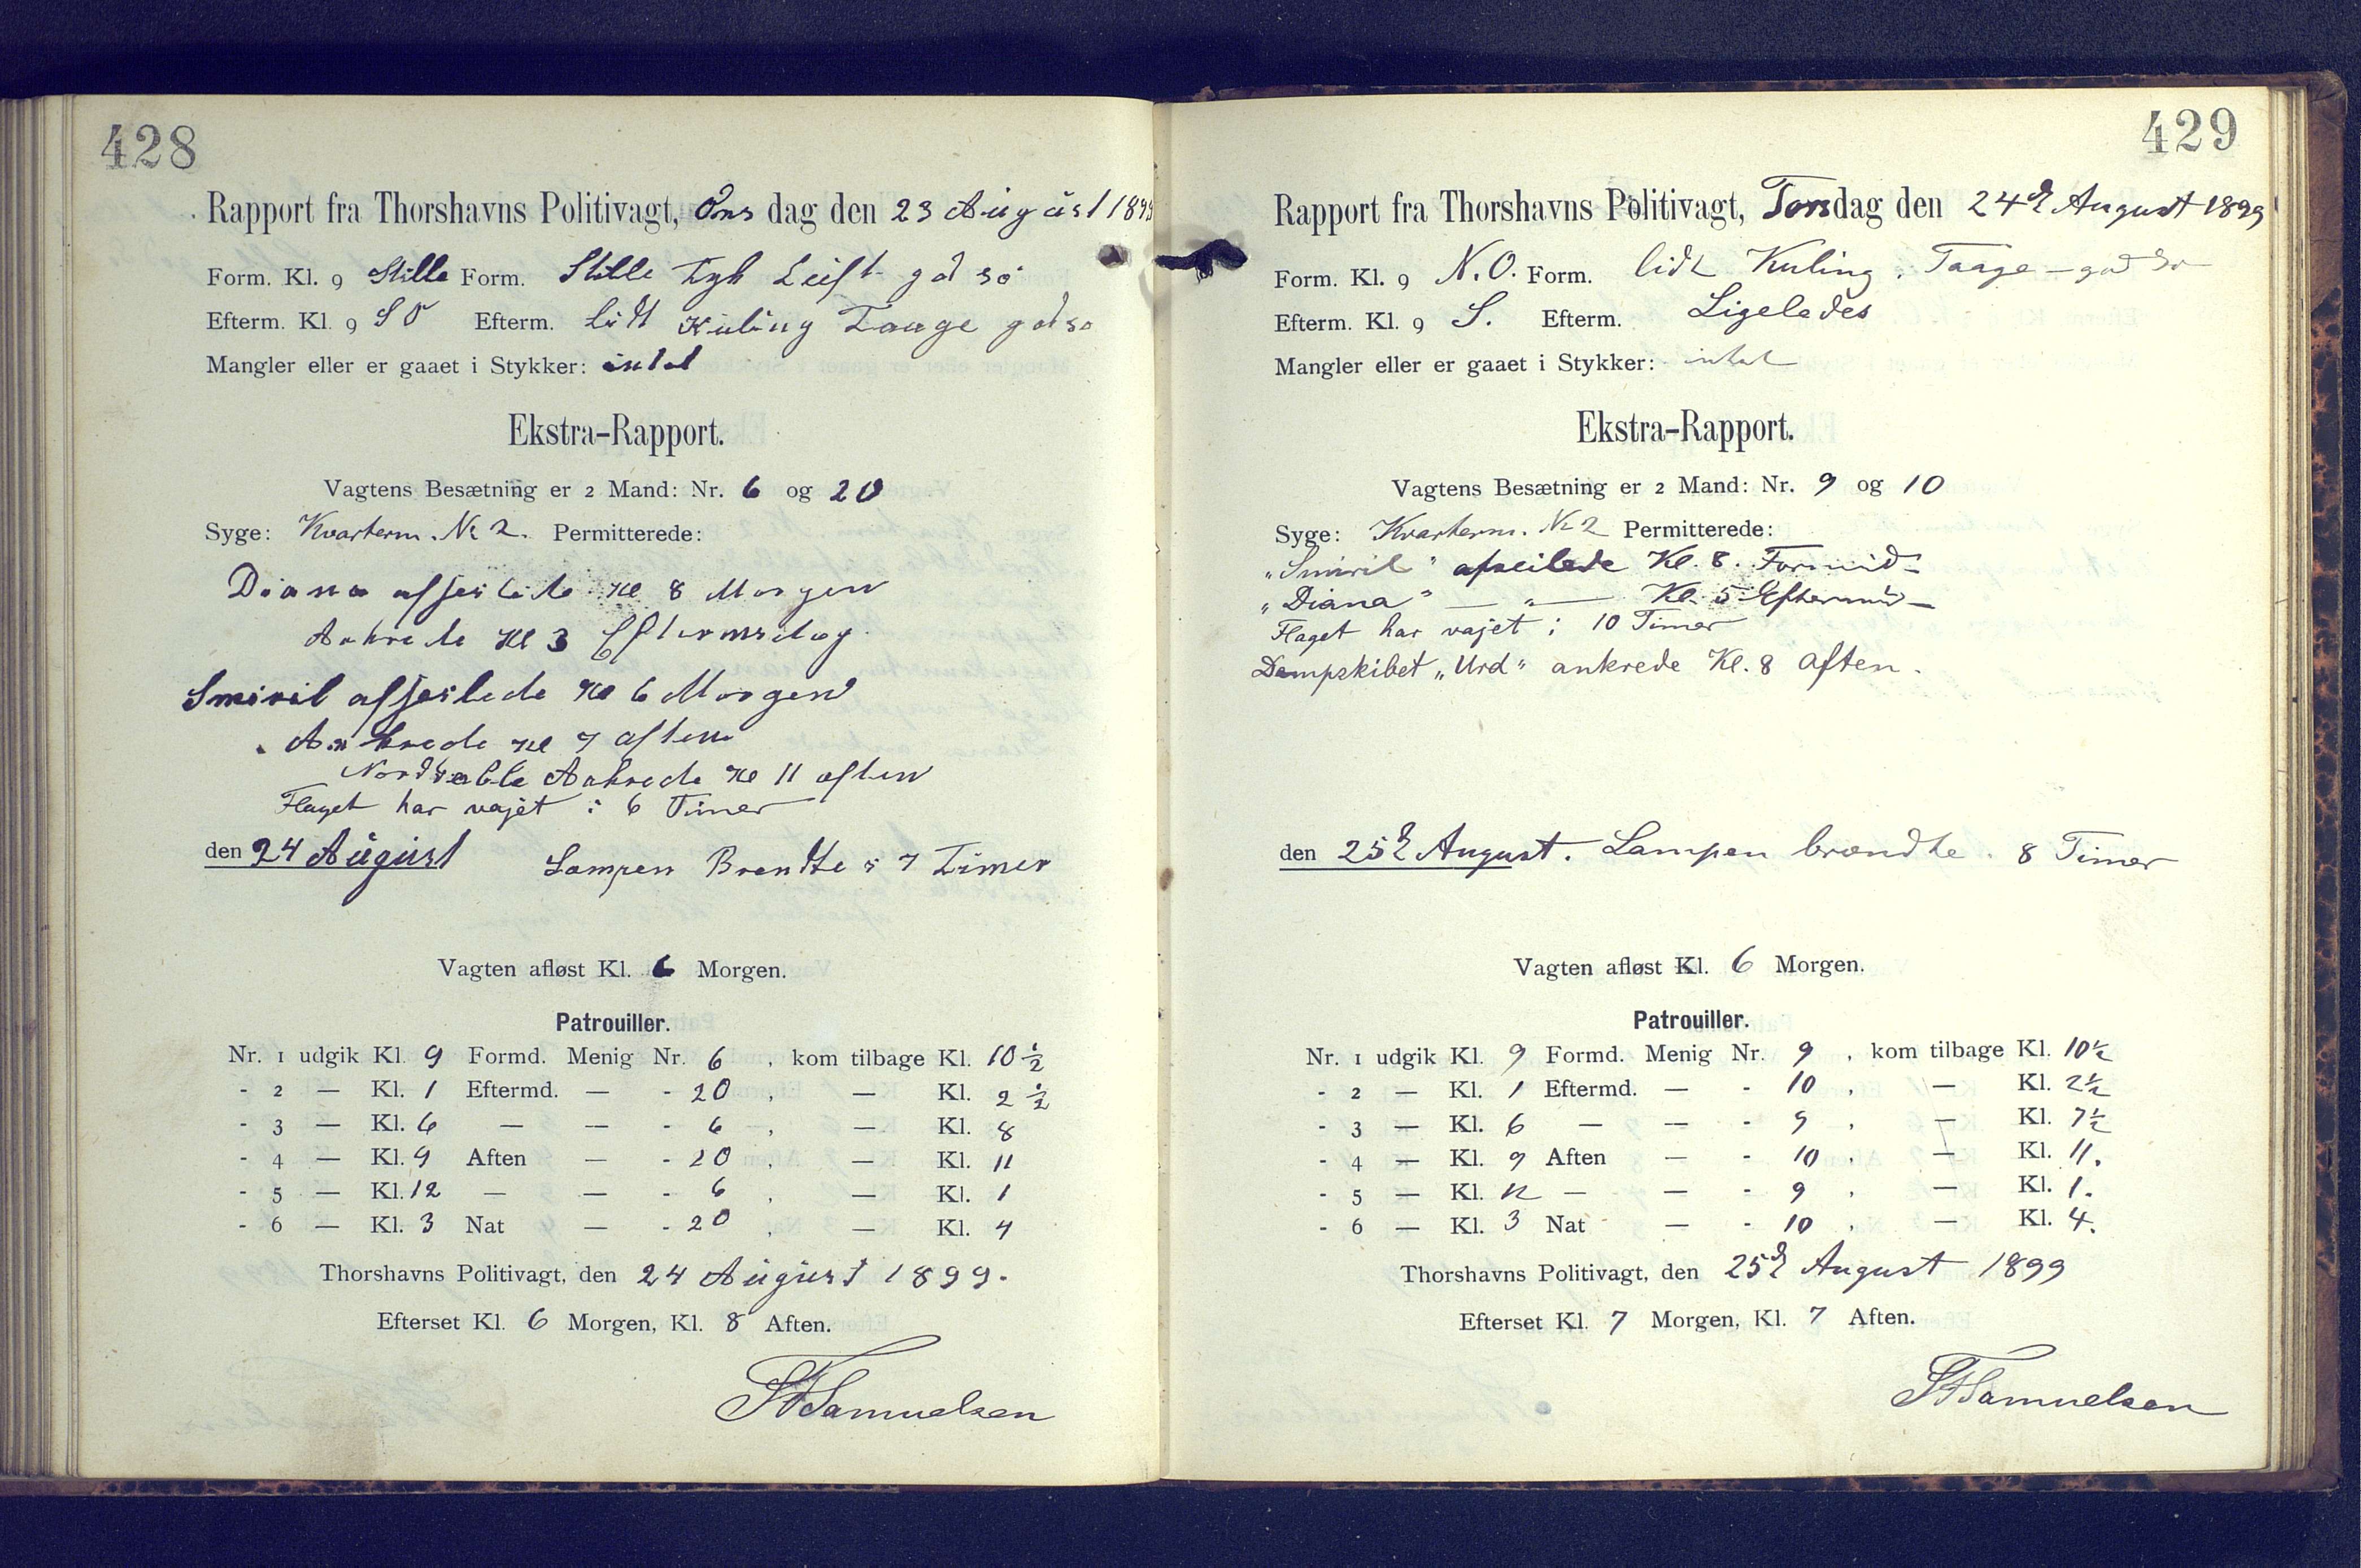 428
Rapport fra Thorshavns Politivagt, Ons dag den 23 August 1899
Form. Kl. 9 Stille Form. Stille Tyk Luft god sø
Efterm. Kl. 9 SO Efterm. Lidt Kuling Taage god sø
Mangler eller er gaaet i Stykker: intet
Ekstra-Rapport.
Vagtens Besætning er 2 Mand: Nr. 6 og 20
Syge: Kvarterm. No 2. Permitterede:
Diana afsejlede Kl 8 Morgen
Ankrede Kl 3 Eftermidag.
Smiril afsejlede Kl 6 Morgen
Ankrede Kl 7 aften
Ankrede Kl 11 aften
Flaget har vajet i 6 Timer
den 24 August Lampen Brendte i 7 Timer
Vagten afløst Kl. 6 Morgen.
Patrouiller.
Nr. 1 udgik Kl. 9 Formd. Menig Nr. 6 , kom tilbage Kl. 10 ½
- 2 — Kl. 1 Eftermd. — - 20 , — Kl. 2 ½
- 3 — Kl. 6 — — - 6 , — Kl. 8
- 4 — Kl. 9 Aften — - 20 , — Kl. 11
- 5 — Kl. 12 — — - 6 , — Kl. 1
- 6 — Kl. 3 Nat — - 20 , — Kl. 4
Thorshavns Politivagt, den 24 August 1899.
Efterset Kl. 6 Morgen, Kl. 8 Aften.
Samuelsen
429
Rapport fra Thorshavns Politivagt, Torsdag den 24d August 1899
Form. Kl. 9 N.O. Form. lidt Kuling. Taage – god Sø
Efterm. Kl. 9 S. Efterm. Ligeledes
Mangler eller er gaaet i Stykker: intet
Ekstra-Rapport.
Vagtens Besætning er 2 Mand: Nr. 9 og 10
Syge: Kvarterm. No 2 Permitterede:
„Smiril" afseilede Kl. 8. Formid–
„Diana" — „ — Kl. 5 Eftermid–
Flaget har vajet i 10 Timer
Dampskibet „Urd" ankrede Kl. 8 Aften.
den 25d August. Lampen brændte. 8 Timer
Vagten afløst Kl. 6 Morgen.
Patrouiller.
Nr. 1 udgik Kl. 9 Formd. Menig Nr. 9 , kom tilbage Kl. 10½
- 2 — Kl. 1 Eftermd. — - 10 , — Kl. 2½
- 3 — Kl. 6 — — - 9 , — Kl. 7½
- 4 — Kl. 9 Aften — - 10 , — Kl. 11.
- 5 — Kl. 12 — — - 9 , — Kl. 1.
- 6 — Kl. 3 Nat — - 10 , — Kl. 4.
Thorshavns Politivagt, den 25d August 1899
Efterset Kl. 7 Morgen, Kl. 7 Aften.
Samuelsen